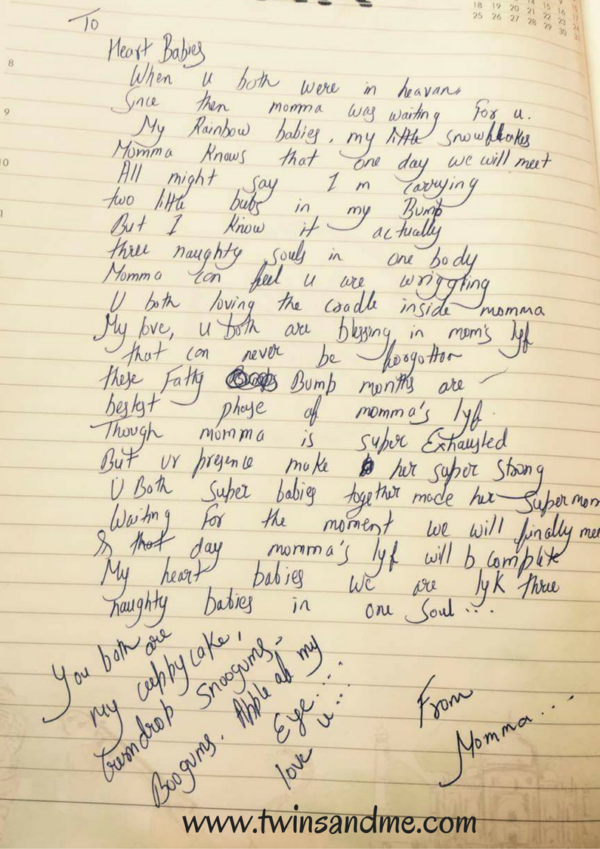 18 19 20 21 22 23 24
25 26 27 28 29 30 31
To
Heart Babies
8
When u both were in heavan.
Since then momma was waiting For u.
9
My Rainbow babies, my little snowflakes
Momma Knows that one day we will meet
10
All might say I m Carrying
two little bubs in my Bump
But I Know it actually
three naughty souls in one body
Momma can feel u are wriggling
U both loving the Coadle inside momma
My love, u both are blessing in mom's lyf
that can never be foogotten
these Fatty Bump months are
bestest phase of momma's lyf.
Though momma is super Exhausted
But ur presence make her super strong
U Both super babies together made her Supermom
Waiting for the moment we will finally meet
& that day momma's lyf will b complete
My heart babies we are lyk three
naughty babies in one Soul...
You both are
my cuppycake,
Gumdrop Snoogums,
Boogums. Apple of my
Eye...
love u...
From
Momma...
www.twinsandme.com